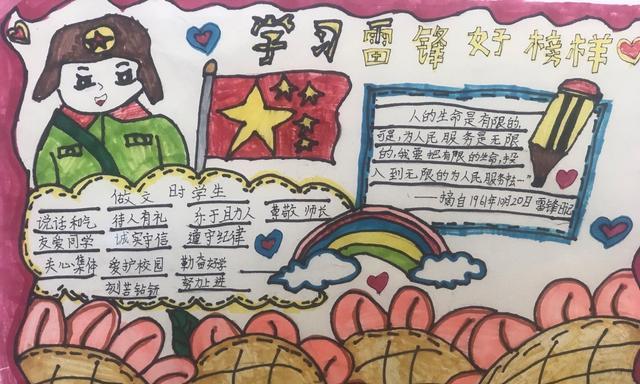 学习雷锋好榜样
人的生命是有限的,
可是,为人民服务是无限
的,我要把有限的生命,投
入到无限的为人民服务去…"
——摘自1961年10月20日雷锋日记
做文时学生
说话和气 待人有礼 乐于助人 尊敬师长
友爱同学 诚实守信 遵守纪律
关心集体 爱护校园 勤奋好学
刻苦钻研 努力上进